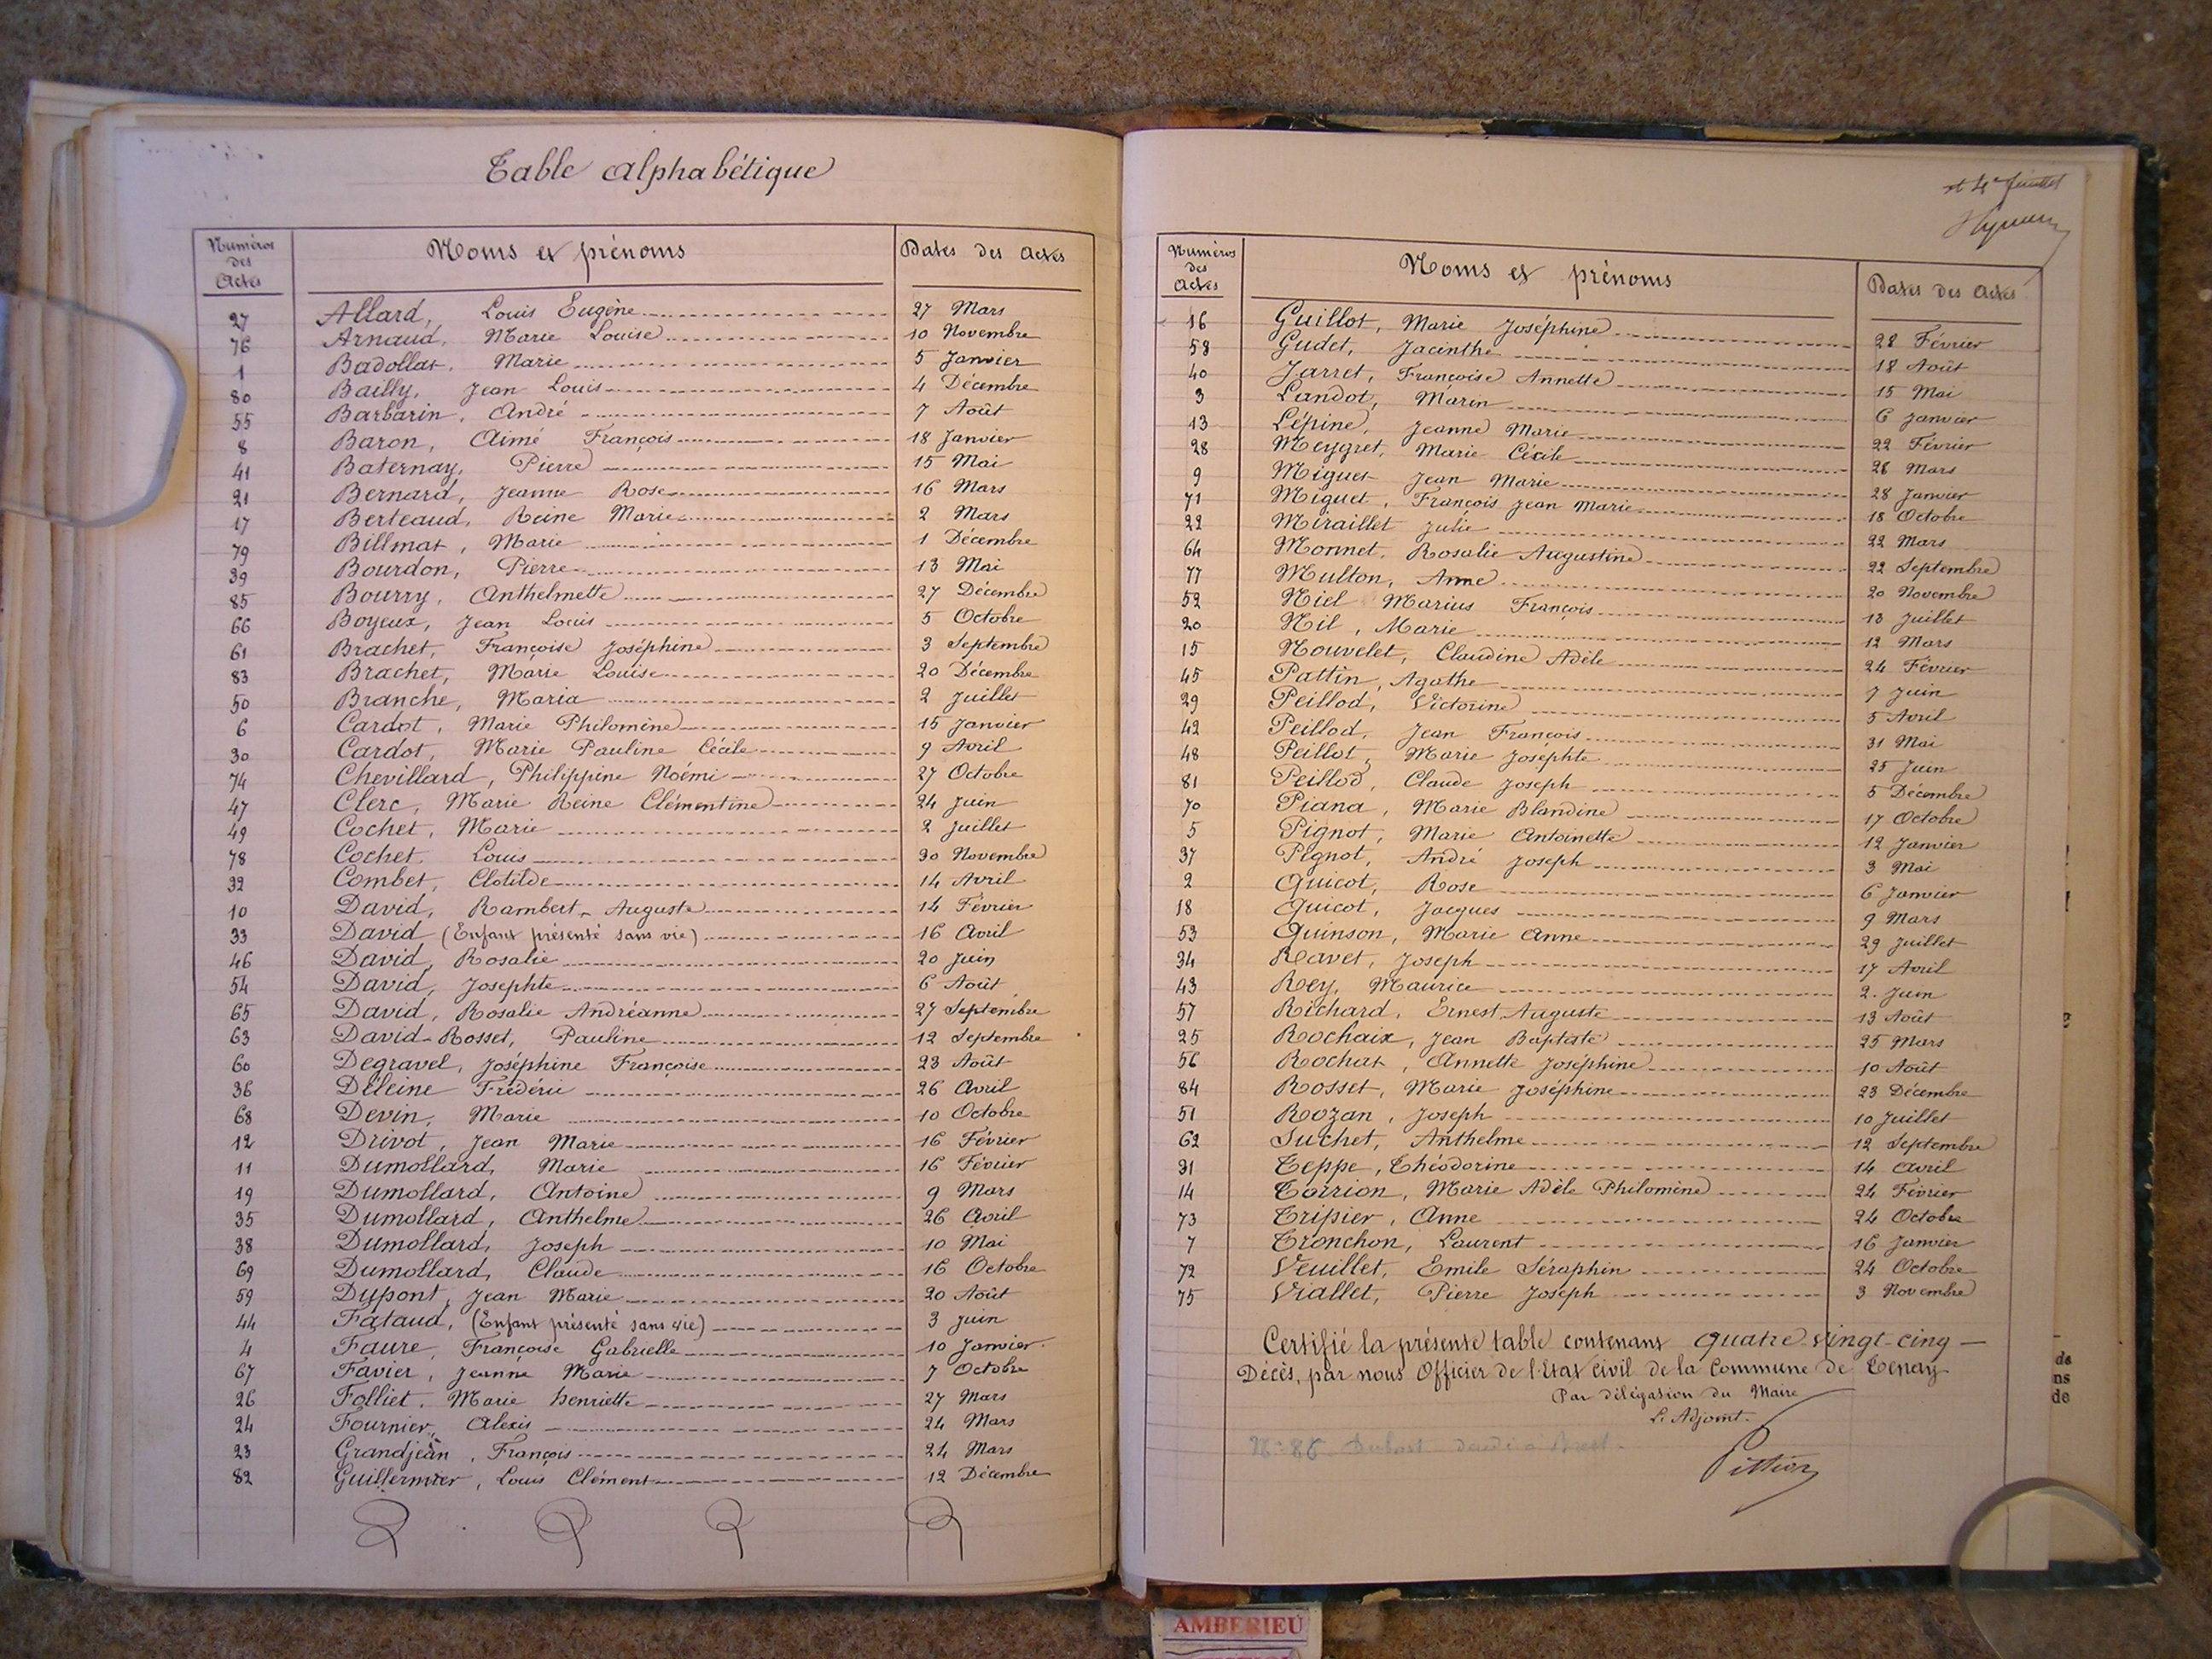 Table alphabétique
Numéros des Actes Noms et prénoms Dates des Actes
27 Allard, Louis Eugène 27 Mars
76 Arnaud, Marie Louise 10 Novembre
1 Badollat, Marie 5 Janvier
80 Bailly, Jean Louis 4 Décembre
55 Barbarin, André 7 Août
8 Baron, Aimé François 18 Janvier
41 Baternay, Pierre 15 Mai
21 Bernard, Jeanne Rose 16 Mars
17 Berteaud, Reine Marie 2 Mars
79 Billmat, Marie 1 Décembre
39 Bourdon, Pierre 13 Mai
85 Bourry, Anthelmette 27 Décembre
66 Boyeux, Jean Louis 5 Octobre
61 Brachet, Françoise Joséphine 3 Septembre
83 Brachet, Marie Louise 20 Décembre
50 Branche, Maria 2 Juillet
6 Cardot, Marie Philomène 15 Janvier
30 Cardot, Marie Pauline Cécile 9 Avril
74 Chevillard, Philippine Noémi 27 Octobre
47 Clerc, Marie Reine Clémentine 24 Juin
49 Cochet, Marie 2 Juillet
78 Cochet, Louis 30 Novembre
32 Combet, Clotilde 14 Avril
10 David, Rambert Auguste 14 Février
33 David (Enfant présenté sans vie) 16 Avril
46 David, Rosalie 20 Juin
54 David, Josephte 6 Août
65 David, Rosalie Andréanne 27 Septembre
63 David-Rosset, Pauline 12 Septembre
60 Degravel, Joséphine Françoise 23 Août
36 Déleine Frédéric 26 Avril
68 Devin, Marie 10 Octobre
12 Drivot, Jean Marie 16 Février
11 Dumollard, Marie 16 Février
19 Dumollard, Antoine 9 Mars
35 Dumollard, Anthelme 26 Avril
38 Dumollard, Joseph 10 Mai
69 Dumollard, Claude 16 Octobre
59 Dupont, Jean Marie 20 Août
44 Fataud, (Enfant présenté sans vie) 3 Juin
4 Faure, Françoise Gabrielle 10 Janvier
67 Favier, Jeanne Marie 7 Octobre
26 Folliet, Marie henriette 27 Mars
24 Fournier, Alexis 24 Mars
23 Grandjean, François 24 Mars
82 Guillermier, Louis Clément 12 Décembre
et 4e Juillet
Numéros des Actes Noms et prénoms Dates des Actes
16 Guillot, Marie Joséphine 28 Février
58 Gudet, Jacinthe 18 Août
40 Jarret, Françoise Annette 15 Mai
3 Landot, Marin 6 Janvier
13 Lépine, Jeanne Marie 22 Février
28 Meygret, Marie Cécile 28 Mars
9 Miguet Jean Marie 28 Janvier
71 Miguet, François Jean Marie 18 Octobre
22 Miraillet Julie 22 Mars
64 Monnet, Rosalie Augustine 22 Septembre
77 Multon, Anne 20 Novembre
52 Niel Marius François 13 Juillet
20 Nil, Marie 12 Mars
15 Nouvelet, Claudine Adèle 24 Février
45 Pattin, Agathe 7 Juin
29 Peillod, Victorine 5 Avril
42 Peillod, Jean François 31 Mai
48 Peillot, Marie Josephte 25 Juin
81 Peillod, Claude Joseph 5 Décembre
70 Piana, Marie Blandine 17 Octobre
5 Pignot, Marie Antoinette 12 Janvier
37 Pignot, André Joseph 3 Mai
2 Quicot, Rose 6 Janvier
18 Quicot, Jacques 9 Mars
53 Quinson, Marie Anne 29 Juillet
34 Ravet, Joseph 17 Avril
43 Rey, Maurice 2 Juin
57 Richard, Ernest Auguste 13 Août
25 Rochaix, Jean Baptiste 25 Mars
56 Rochat, Annette Joséphine 10 Août
84 Rosset, Marie Joséphine 23 Décembre
51 Rozan, Joseph 10 Juillet
62 Suchet, Anthelme 12 Septembre
31 Teppe, Théodorine 14 Avril
14 Torrion, Marie Adèle Philomène 24 Février
73 Tripier, Anne 24 Octobre
7 Tronchon, Laurent 16 Janvier
72 Veuillet, Emile Séraphin 24 Octobre
75 Viallet, Pierre Joseph 3 Novembre
Certifié la présente table contenant quatre-vingt-cinq
Décès, par nous Officier de l'Etat Civil de la Commune de Tenay
Par délégation du Maire
L'Adjoint.
N° 86
Pittion
de
ns
de
AMBERIEU